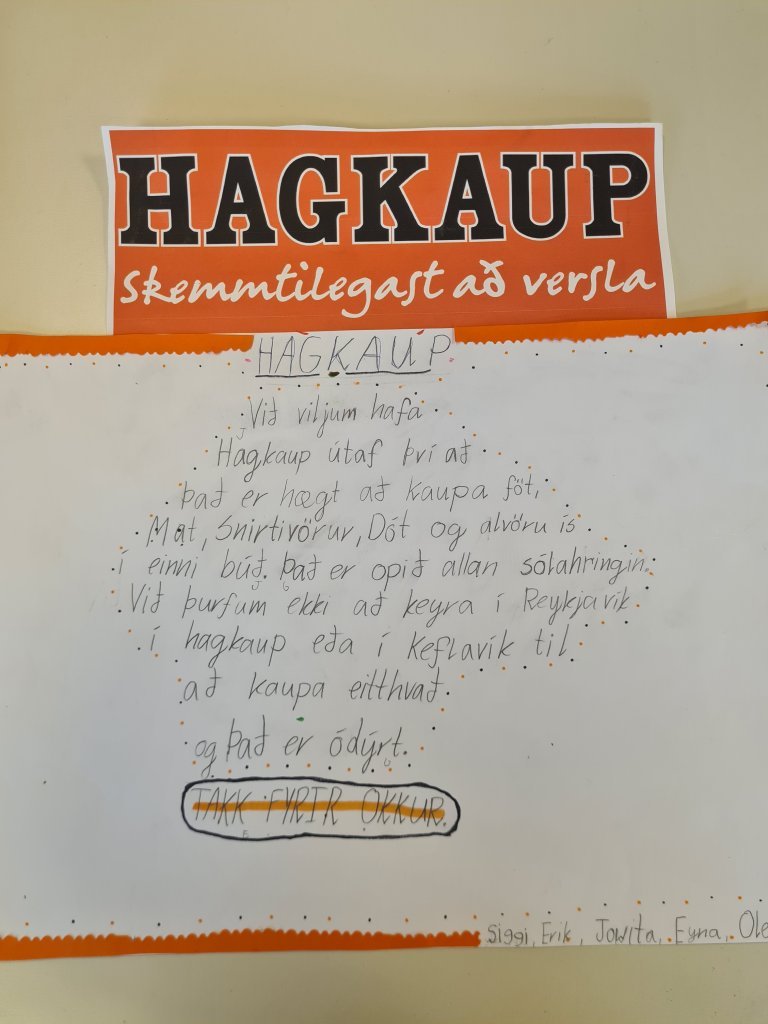 HAGKAUP
skemmtilegast að versla
HAGKAUP
Við viljum hafa
Hagkaup útaf því að
Það er hægt að kaupa föt,
Mat, Snirtivörur, Dót og alvöru ís
í einni búð. Það er opið allan sólahringin.
Við þurfum ekki að keyra í Reykjavík
í hagkaup eða í Keflavík til
að kaupa eitthvað.
og Það er ódýrt.
TAKK FYRIR OKKUR.
Siggi, Erik, Jowita, Eyna, Ole